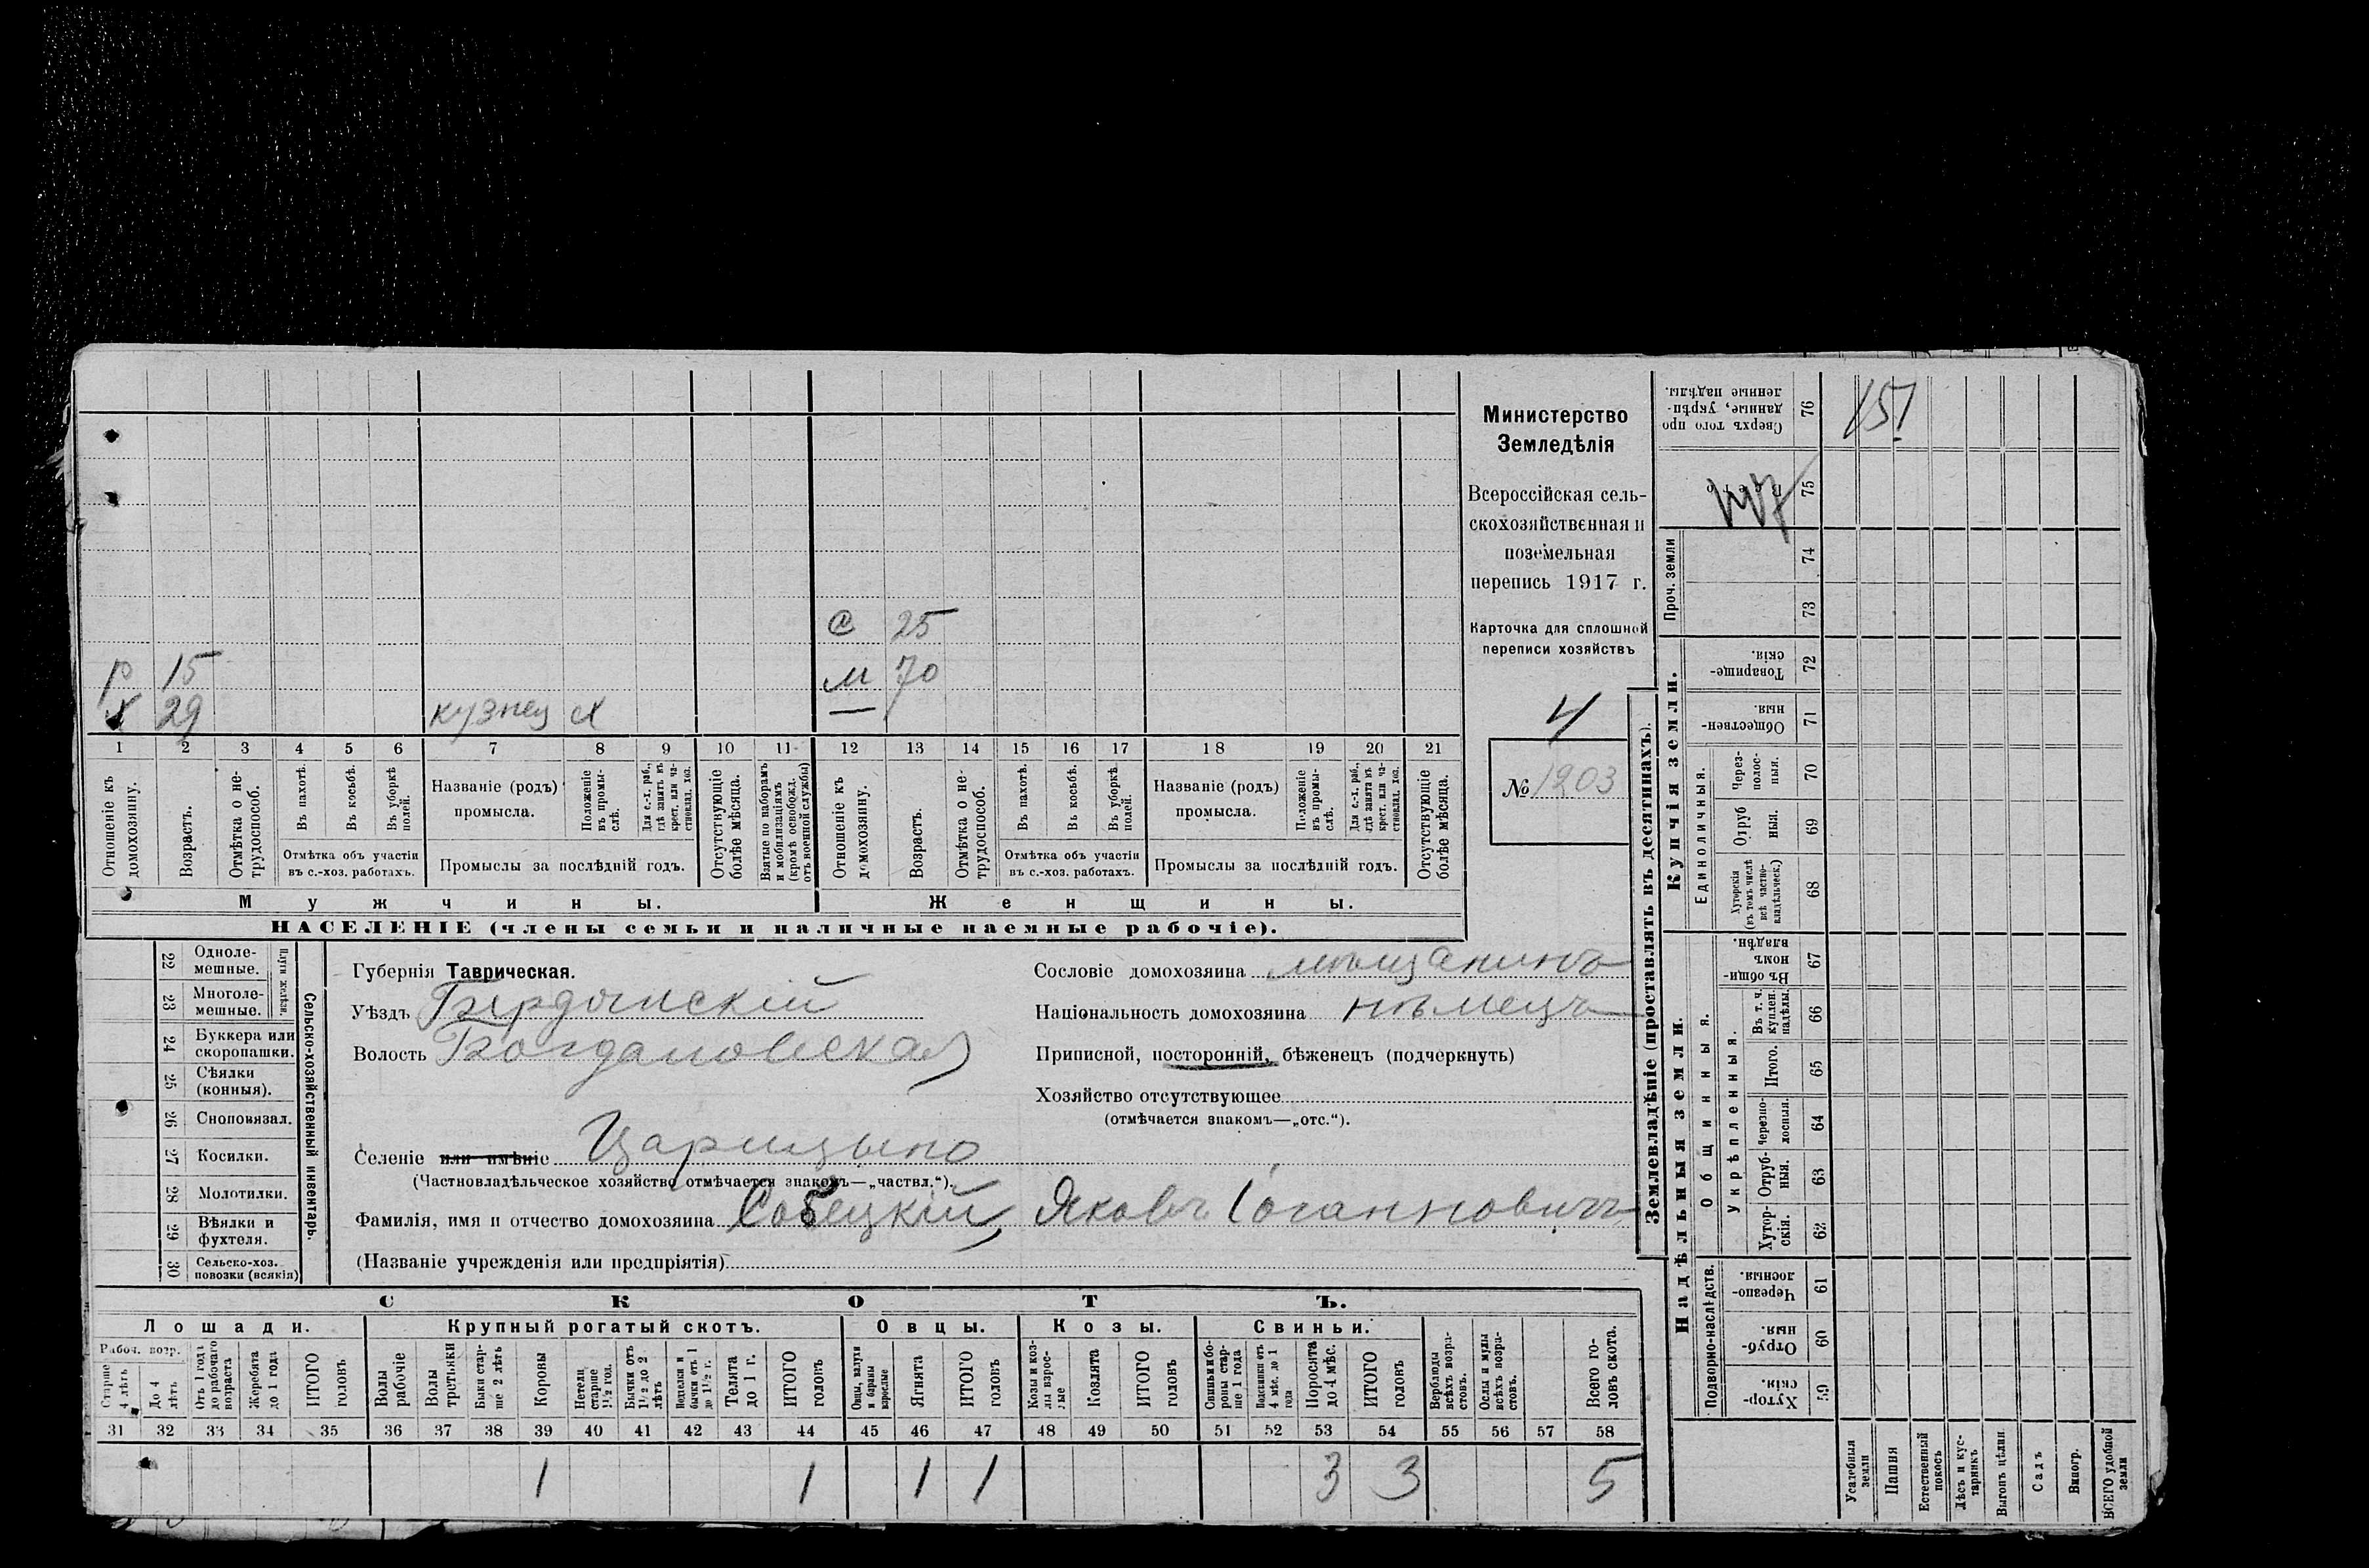 151
Министерство
Земледѣлія
Всероссійская сель-
скохозяйственная и
поземельная
перепись 1917 г.
Карточка для сплошной
переписи хозяйствъ
4
№ 1203
С 25
р 15
м 70
х 29 кузнец х —
1 2 3 4 5 6 7 8 9 10 11 12 13 14 15 16 17 18 19 20 21
Отношеніе къ домохозяину.
Возрастъ.
Отмѣтка о не-трудоспособ.
Въ пахотѣ.
Въ косьбѣ.
Въ уборкѣ полей.
Отмѣтка объ участіи
въ с.-хоз. работахъ.
Названіе (родъ)
промысла.
Положеніе въ промы-слѣ.
Для с.-х. раб., гдѣ занятъ въ крест. или ча-стновлад. хоз.
Промыслы за послѣдній годъ.
Отсутствующіе болѣе мѣсяца.
Взятые по наборамъ и мобилизаціямъ (кромѣ освобожд. отъ военной службы)
Отношеніе къ домохозяину.
Возрастъ.
Отмѣтка о не-трудоспособ.
Въ пахотѣ.
Въ косьбѣ.
Въ уборкѣ полей.
Отмѣтка объ участіи
въ с.-хоз. работахъ.
Названіе (родъ)
промысла.
Положеніе въ промы-слѣ.
Для с.-х. раб., гдѣ занята въ крест. или ча-стновлад. хоз.
Промыслы за послѣдній годъ.
Отсутствующіе болѣе мѣсяца.
Мужчины. Женщины.
НАСЕЛЕНІЕ (члены семьи и наличные наемные рабочіе).
22 Одноле-мешные.
23 Многоле-мешные.
Плуги желѣзн.
24 Буккера или скоропашки.
25 Сѣялки (конныя).
26 Сноповязал.
27 Косилки.
28 Молотилки.
29 Вѣялки и фухтеля.
30 Сельско-хоз. повозки (всякія)
Сельско-хозяйственный инвентарь.
Губернія Таврическая.
Уѣздъ Бердянскій
Волость Богдановская
Селеніе или имѣніе Царицыно
(Частновладѣльческое хозяйство отмѣчается знакомъ—„частвл.“).
Фамилія, имя и отчество домохозяина Собецкій Яковъ Іоганновичъ
(Названіе учрежденія или предпріятія)
Сословіе домохозяина мѣщанинъ
Національность домохозяина нѣмецъ
Приписной, посторонній, бѣженецъ (подчеркнуть)
Хозяйство отсутствующее
(отмѣчается знакомъ—„отс.“).
СКОТЪ.
Лошади. Крупный рогатый скотъ. Овцы. Козы. Свиньи.
Рабоч. возр.
Старше 4 лѣтъ
До 4 лѣтъ
Отъ 1 года до рабочаго возраста
Жеребята до 1 года
ИТОГО головъ
Волы рабочіе
Волы третьяки
Быки стар-ше 2 лѣтъ
Коровы
Нетели старше 1½ год.
Бычки отъ 1½ до 2 лѣтъ
Телята до 1 г.
ИТОГО головъ
Овцы, валухи и бараны взрослые
Ягнята
ИТОГО головъ
Козы и коз-лы взрос-лые
Козлята
ИТОГО головъ
Свиньи и бо-ровы стар-ше 1 года
Подсвинки отъ 4 мѣс. до 1 года
Поросята до 4 мѣс.
ИТОГО головъ
Верблюды всѣхъ возра-стовъ.
Ослы и мулы всѣхъ возра-стовъ.
Всего го-ловъ скота.
31 32 33 34 35 36 37 38 39 40 41 42 43 44 45 46 47 48 49 50 51 52 53 54 55 56 57 58
1 1 1 1 3 3 5
Землевладѣніе (проставлять въ десятинахъ).
Сверхъ того про-данные, укрѣп-ленные надѣлы. 76
75
Проч. земли 74
73
Купчія земли.
Товарище-скія. 72
Обществен-ныя. 71
Единоличныя.
Через-полос-ныя. 70
Отруб-ныя. 69
Хуторскія (въ томъ числѣ всѣ частно-владѣльческ.) 68
Надѣльныя земли.
Общинныя.
Въ общи-номъ владѣн. 67
Укрѣпленныя.
Въ т. ч. куплен. надѣлы. 66
Итого. 65
Черезпо-лосныя. 64
Отруб-ныя. 63
Хутор-скія. 62
Подворно-наслѣдств.
Черезпо-лосныя 61
Отруб-ныя. 60
Хутор-скія. 59
Усадебная земля
Пашня
Естественный покосъ
Лѣсъ и кус-тарникъ
Выгонъ цѣлин.
Садъ
Виногр.
ВСЕГО удобной земли